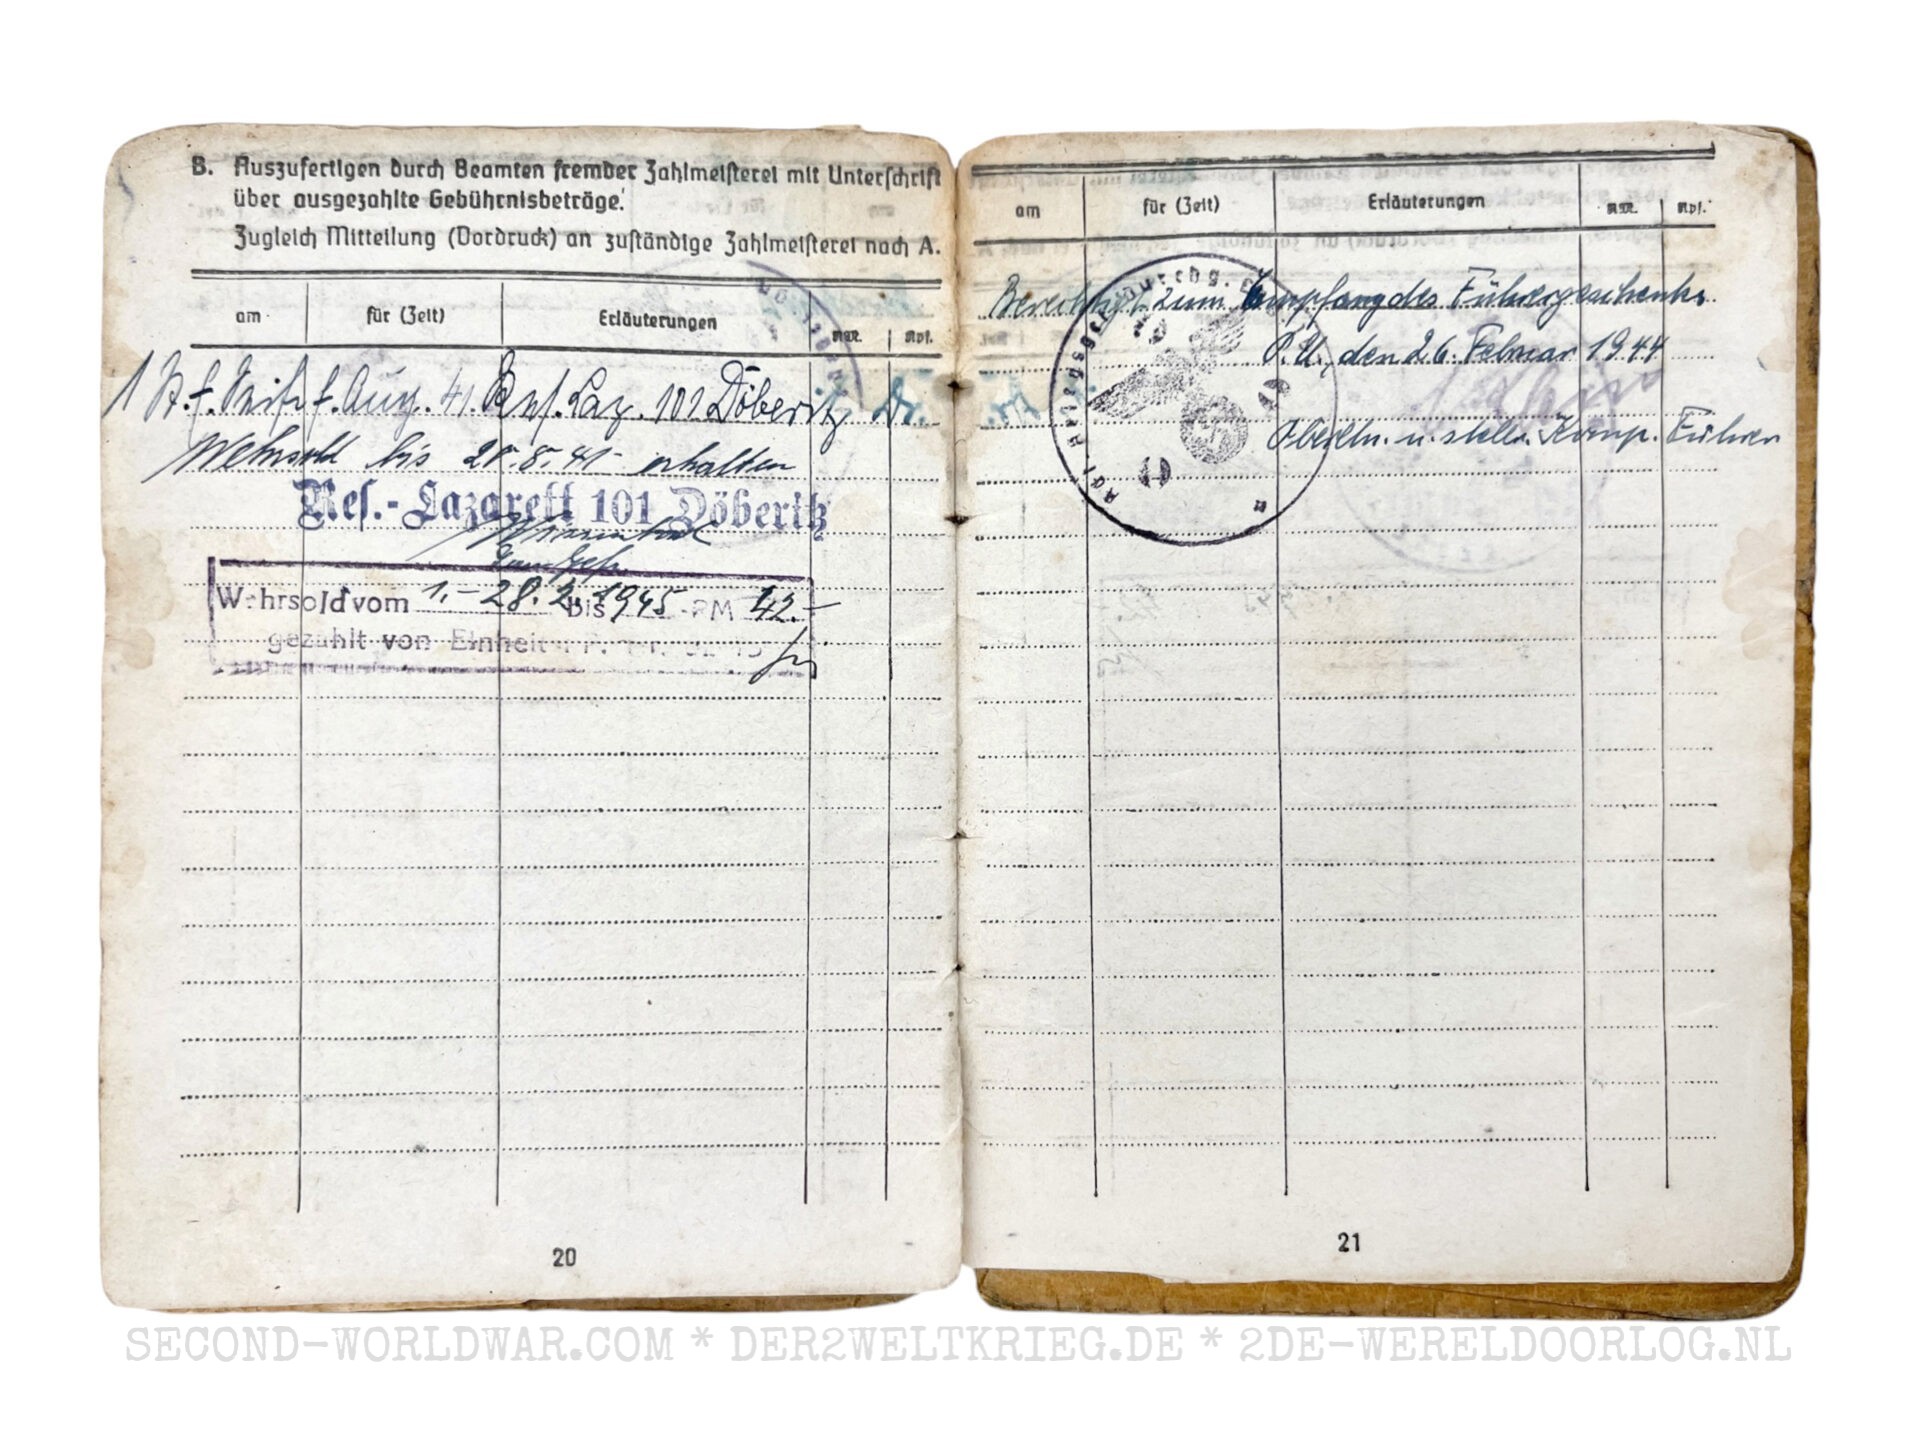 B. Auszufertigen durch Beamten fremder Zahlmeisterei mit Unterschrift
über ausgezahlte Gebührnisbeträge.
Zugleich Mitteilung (Vordruck) an zuständige Zahlmeisterei nach A.
am für (Zeit) Erläuterungen RM. Rpf.
f. Aug. 41. Res. Laz. 101 Döberitz
Wehrsold bis erhalten
Res.-Lazarett 101 Döberitz
Wehrsold vom 1.-28.2.1945 bis RM 42.-
gezahlt von Einheit
20
am für (Zeit) Erläuterungen RM. Rpf.
Berechtigt zum Empfang des Führergeschenks.
O.U., den 26. Februar 1944
Oberltn. u. stellv. Komp. Führer
21
SECOND-WORLDWAR.COM * DER2WELTKRIEG.DE * 2DE-WERELDOORLOG.NL